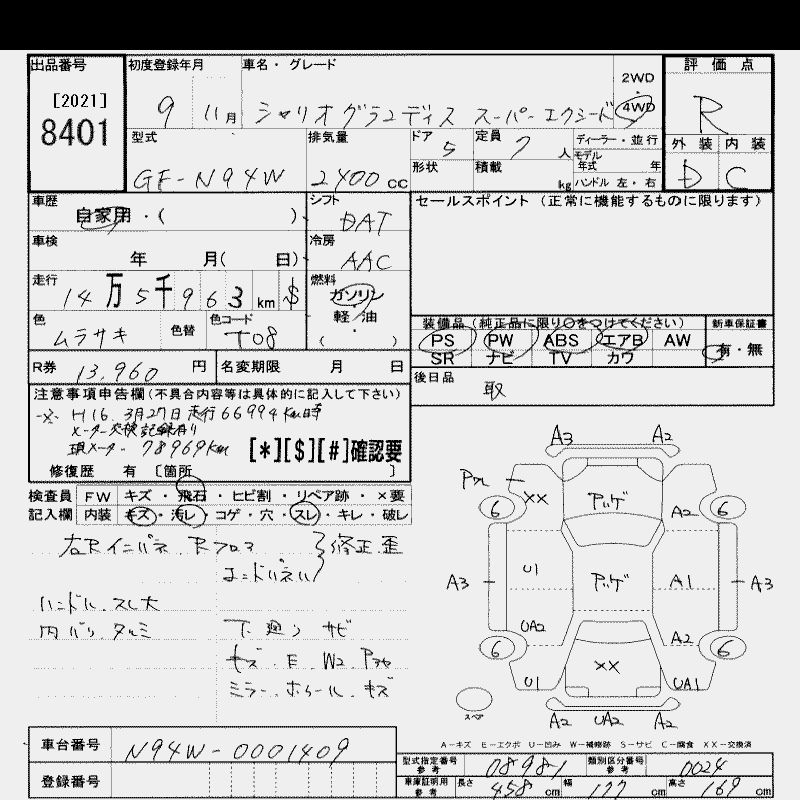 出品番号
[2021]
8401
初度登録年月
9 11月
車名・グレード
シャリオグランディス スーパーエクシード
2WD
4WD
評価点
R
外装 内装
D C
型式
GF-N94W
排気量
2400cc
ドア
5
形状
定員
7人
積載
kg
ディーラー・並行
モデル年式 年
ハンドル 左・右
車歴
自家用・( )
シフト
DAT
セールスポイント(正常に機能するものに限ります)
車検
年 月( 日)
冷房
AAC
走行
14万5千963km $
燃料
ガソリン
軽/油
( )
色
ムラサキ
色替
色コード
T08
装備品(純正品に限り○をつけてください)
PS PW ABS エアB AW
SR ナビ TV カワ
新車保証書
有・無
R券
13,960円
名変期限 月 日
後日品
取
注意事項申告欄(不具合内容等は具体的に記入して下さい)
-※- H16.3月27日走行66994km時
メーター交換記録有り
現メーター 78969km
[*][$][#]確認要
修復歴 有 〔箇所 〕
検査員 FW キズ・飛石・ヒビ割・リペア跡・×要
記入欄 内装 キズ・汚レ・コゲ・穴・スレ・キレ・破レ
右Rインパネ.Rフロア
修正.歪
ハンドル.スレ大
内バリ.タルミ
下廻り サビ
キズ.E.W2
ミラー.ホイール.キズ
A3 A2
XX
6 6
アゲ
A2
A3 U1 アゲ A1 A3
UA2 A2
6 6
XX
U1 UA1
スペア
A2 UA2 A2
A-キズ E-エクボ U-凹み W-補修跡 S-サビ C-腐食 XX-交換済
車台番号
N94W-0001409
登録番号
型式指定番号 参考
08981
類別区分番号 参考
0024
車庫証明用 参考
長さ 458cm
幅 177cm
高さ 169cm